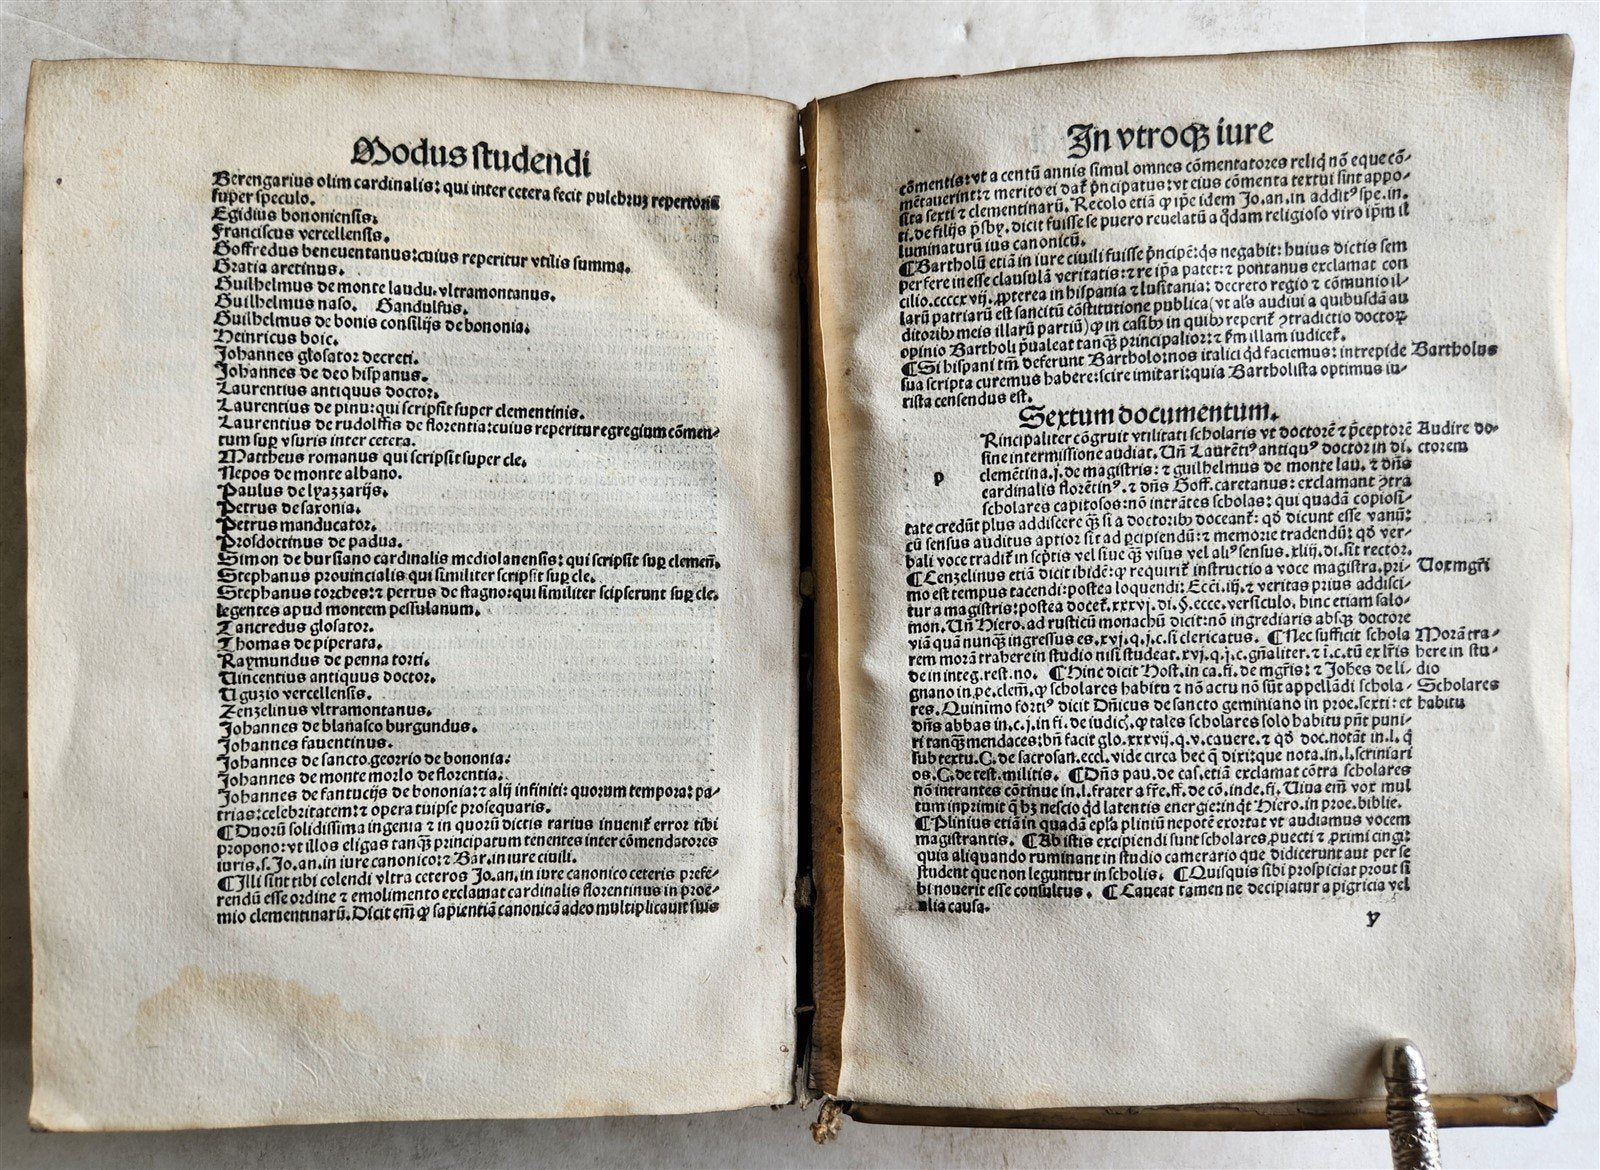 Modus studendi
Berengarius olim cardinalis: qui inter cetera fecit pulchruz repertoriũ
super speculo.
Egidius bononiensis.
Franciscus vercellensis.
Goffredus beneuentanus: cuius reperitur vtilis summa.
Gratia aretinus.
Guilhelmus de monte laudu. vltramontanus.
Guilhelmus naso. Gandulfus.
Guilhelmus de bonis consilijs de bononia.
Heinricus boic.
Johannes glosator decreti.
Johannes de deo hispanus.
Laurentius antiquus doctor.
Laurentius de pinu: qui scripsit super clementinis.
Laurentius de rudolffis de florentia: cuius reperitur egregium cõmen-
tum suꝑ vsuris inter cetera.
Mattheus romanus qui scripsit super cle.
Nepos de monte albano.
Paulus de lyazzarijs.
Petrus de saxonia.
Petrus manducator.
Prosdoctinus de padua.
Simon de bursiano cardinalis mediolanensis: qui scripsit suꝑ clemeñ.
Stephanus prouincialis qui similiter scripsit suꝑ cle.
Stephanus torches: ⁊ petrus de stagno: qui similiter scipserunt suꝑ cle.
legentes apud montem pessulanum.
Tancredus glosator.
Thomas de piperata.
Raymundus de penna torti.
Vincentius antiquus doctor.
Uguzio vercellensis.
Zenzelinus vltramontanus.
Johannes de blanasco burgundus.
Johannes fauentinus.
Johannes de sancto georrio de bononia:
Johannes de monte morlo de florentia:
Johannes de fantucijs de bononia: ⁊ alij infiniti: quorum tempora: pa-
trias: celebritatem: ⁊ opera tuipse prosequaris.
¶ Duorũ solidissima ingenia ⁊ in quorũ dictis rarius inuenit᷑ error tibi
propono: vt illos eligas tanq̃ȝ principatum tenentes inter cõmendatores
iuris. s. Jo. an. in iure canonico: ⁊ Bar. in iure ciuili.
¶ Illi sint tibi colendi vltra ceteros Jo. an. in iure canonico ceteris prefe-
rendũ esse ordine ⁊ emolimento exclamat cardinalis florentinus in proe-
mio clementinarũ. Dicit em̃ ꝙ sapientiã canonicã adeo multiplicauit suis
In vtroqȝ iure
cõmentis: vt a centũ annis simul omnes cõmentatores reliq̇ nõ eque cõ-
mẽtauerint: ⁊ merito ei dat᷑ p̃ncipatus: vt eius cõmenta textui sint appo-
sita sexti ⁊ clementinarũ. Recolo etiã ꝙ ip̃e idem Jo. an. in addit⁹ spe. in.
ti. de filijs p̃sby. dicit fuisse se puero reuelatũ a q̇dam religioso viro ip̃m il
luminaturũ ius canonicũ.
¶ Bartholũ etiã in iure ciuili fuisse p̃ncipẽ: q̇s negabit: huius dictis sem
per fere inesse clausulã veritatis: ⁊ re ip̃a patet: ⁊ pontanus exclamat con
cilio. ccccxvij. ꝓpterea in hispania ⁊ lusitania: decreto regio ⁊ cõmunio il-
larũ patriarũ est sancitũ cõstitutione publica (vt al's audiui a quibusdã au
ditoribȝ meis illarũ partiũ) ꝙ in casibȝ in quibȝ reperit᷑ ↄtradictio doctoꝝ
opinio Bartholi p̃ualeat tanq̃ȝ principalior: ⁊ p̃m illam iudicet᷑.
¶ Si hispani tm̃ deferunt Bartholo: nos italici q̇d faciemus: intrepide
Bartholus
sua scripta curemus habere: scire imitari: quia Bartholista optimus iu-
rista censendus est.
Sextum documentum.
p
Rincipaliter cõgruit vtilitati scholaris vt doctorẽ ⁊ p̃ceptorẽ
Audire do-
sine intermissione audiat. Vñ Laurẽti⁹ antiqu⁹ doctor in di.
ctorem
clemẽtina. j. de magistris: ⁊ guilhelmus de monte lau. ⁊ dñs
cardinalis florẽtin⁹. ⁊ dñs Goff. caretanus: exclamant ↄtra
scholares capitosos: nõ intrãtes scholas: qui quadã copiosi-
tate credũt plus addiscere q̃ȝ si a doctoribȝ doceant᷑: qd̃ dicunt esse vanũ:
cũ sensus auditus aptior sit ad ꝑcipiendũ: ⁊ memorie tradendũ: qd̃ ver-
bali voce tradit᷑ in sc̃ptis vel siue q̃ȝ visus vel ali⁹ sensus. xliij. di. sit rector.
¶ Cenzelinus etiã dicit ibidẽ: ꝙ requirit᷑ instructio a voce magistra. pri-
Vox mgr̃i
mo est tempus tacendi: postea loquendi: Ecci. iij. ⁊ veritas prius addisci-
tur a magistris: postea docet᷑. xxxvj. di. §. ecce. versiculo. hinc etiam salo-
mon. Vñ Hiero. ad rusticũ monachũ dicit: nõ ingrediaris absqȝ doctore
viã quã nunq̃ȝ ingressus es. xvj. q. j. c. si clericatus. ¶ Nec sufficit schola
Morã tra-
rem morã trahere in studio nisi studeat. xvj. q. j. c. gñaliter. ⁊ i. c. tũ ex lr̃is
here in stu-
de in integ. rest. no. ¶ Hinc dicit Host. in ca. fi. de mgr̃is: ⁊ Johẽs de li-
dio
gnano in. pe. clem̃. ꝙ scholares habitu ⁊ nõ actu nõ sũt appellãdi schola-
Scholares
res. Quinimo forti⁹ dicit Dñicus de sancto geminiano in proe. sexti: et
habitu
dñs abbas in. c. j. in fi. de iudic̃. ꝙ tales scholares solo habitu pñt puni-
ri tanq̃ȝ mendaces: bñ facit glo. xxxvij. q. v. cauere. ⁊ qd̃ doc. notãt in. l. q̇
sub textu. C. de sacrosan. eccl. vide circa hec q̃ dixi: que nota. in. l. scriniari
os. C. de test. militis. ¶ Dñs pau. de cas. etiã exclamat cõtra scholares
nõ intrantes cõtinue in. l. frater a fr̃e. ff. de cõ. inde. fi. Viua em̃ vox mul
tum inprimit q̃ hȝ nescio q̇d latentis energie: inq̇t Hiero. in proe. biblie.
¶ Plinius etiã in quadã epl'a pliniũ nepotẽ exortat vt audiamus vocem
magistrantis. ¶ Ab istis excipiendi sunt scholares ꝓuecti ⁊ ꝓximi cingi:
quia aliquando ruminant in studio camerario que didicerunt aut per se
student que non leguntur in scholis. ¶ Quisquis sibi prospiciat prout si
bi nouerit esse consultus. ¶ Caueat tamen ne decipiatur a pigricia vel
alia causa.
y